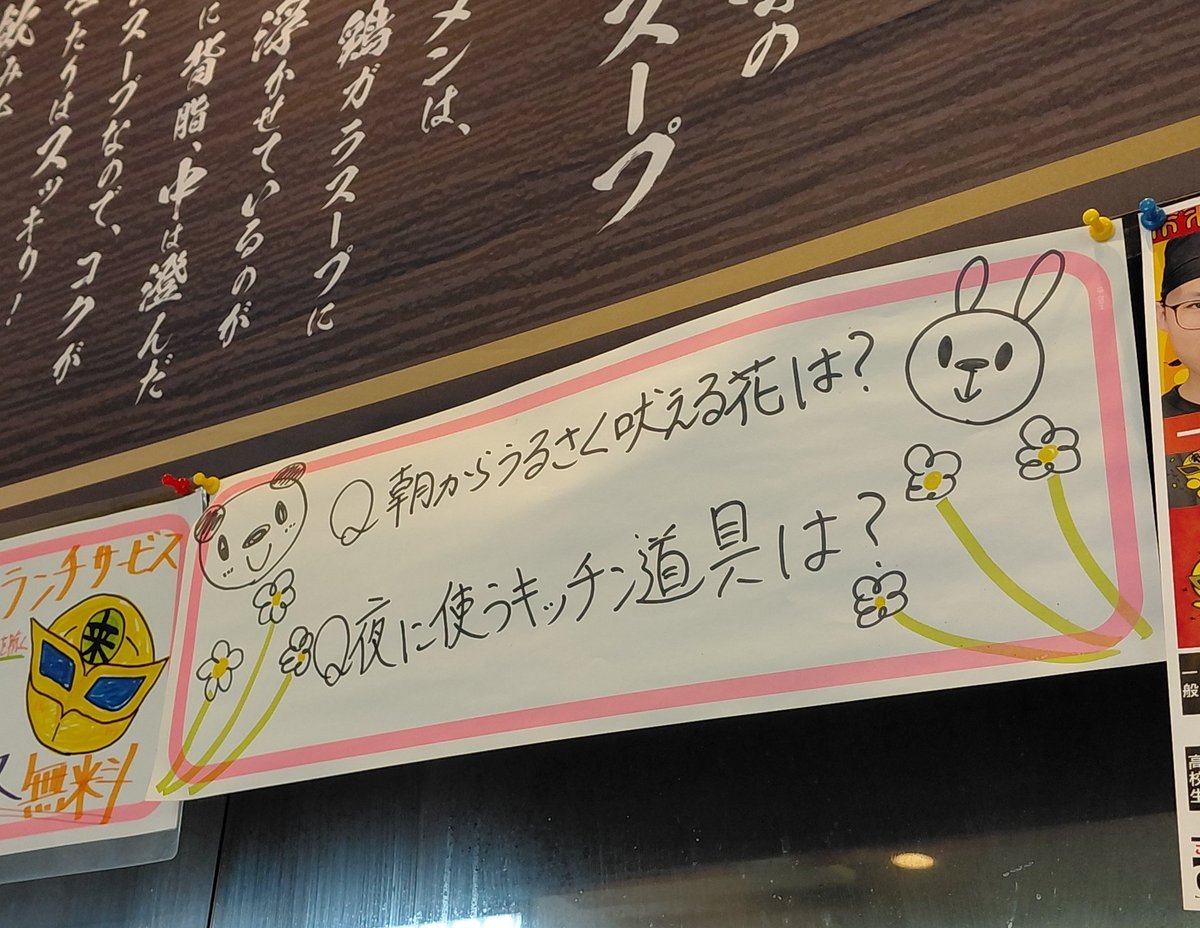 スープ
メンは、
鶏ガラスープに
浮かせているのが
に背脂、中は澄んだ
スープなので、コクが
たりはスッキリ!
飲みや
Q 朝からうるさく吠える花は?
Q 夜に使うキッチン道具は?
ランチサービス
来
無料
一般
高校生